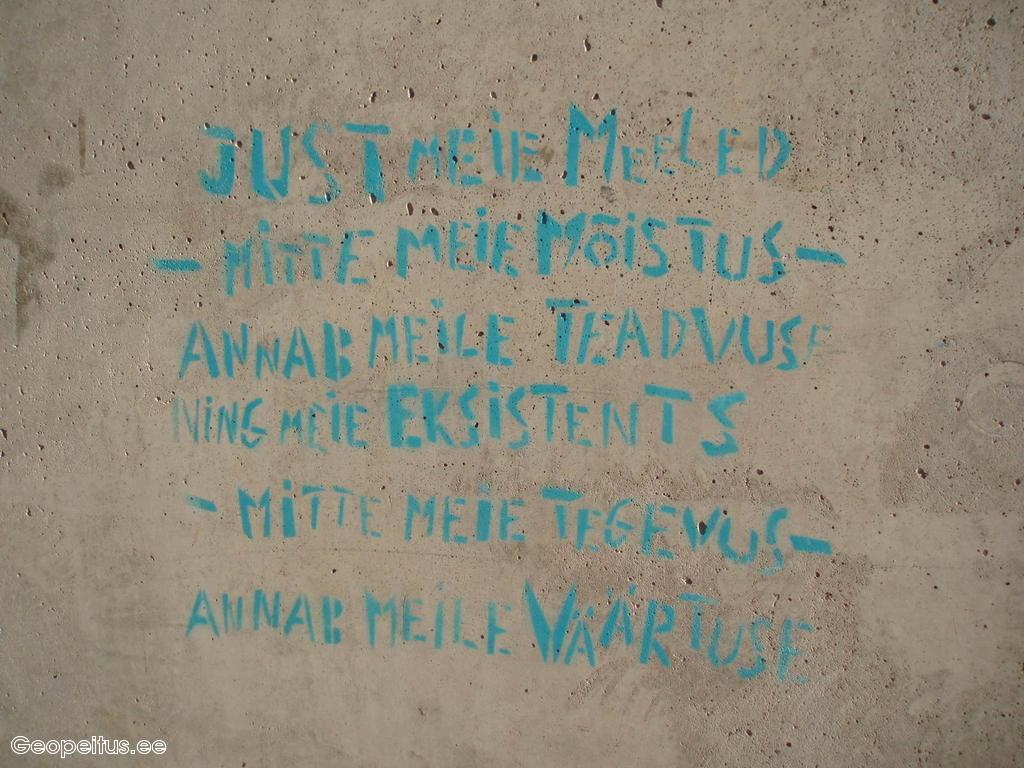 JUST MEiE MEELED
- MiTTE MEiE MÕiSTUS -
ANNAB MEiLE TEADVUSE
NiNG MEiE EKSiSTENTS
- MiTTE MEiE TEGEVUS -
ANNAB MEiLE VÄÄRTUSE
Geopeitus.ee